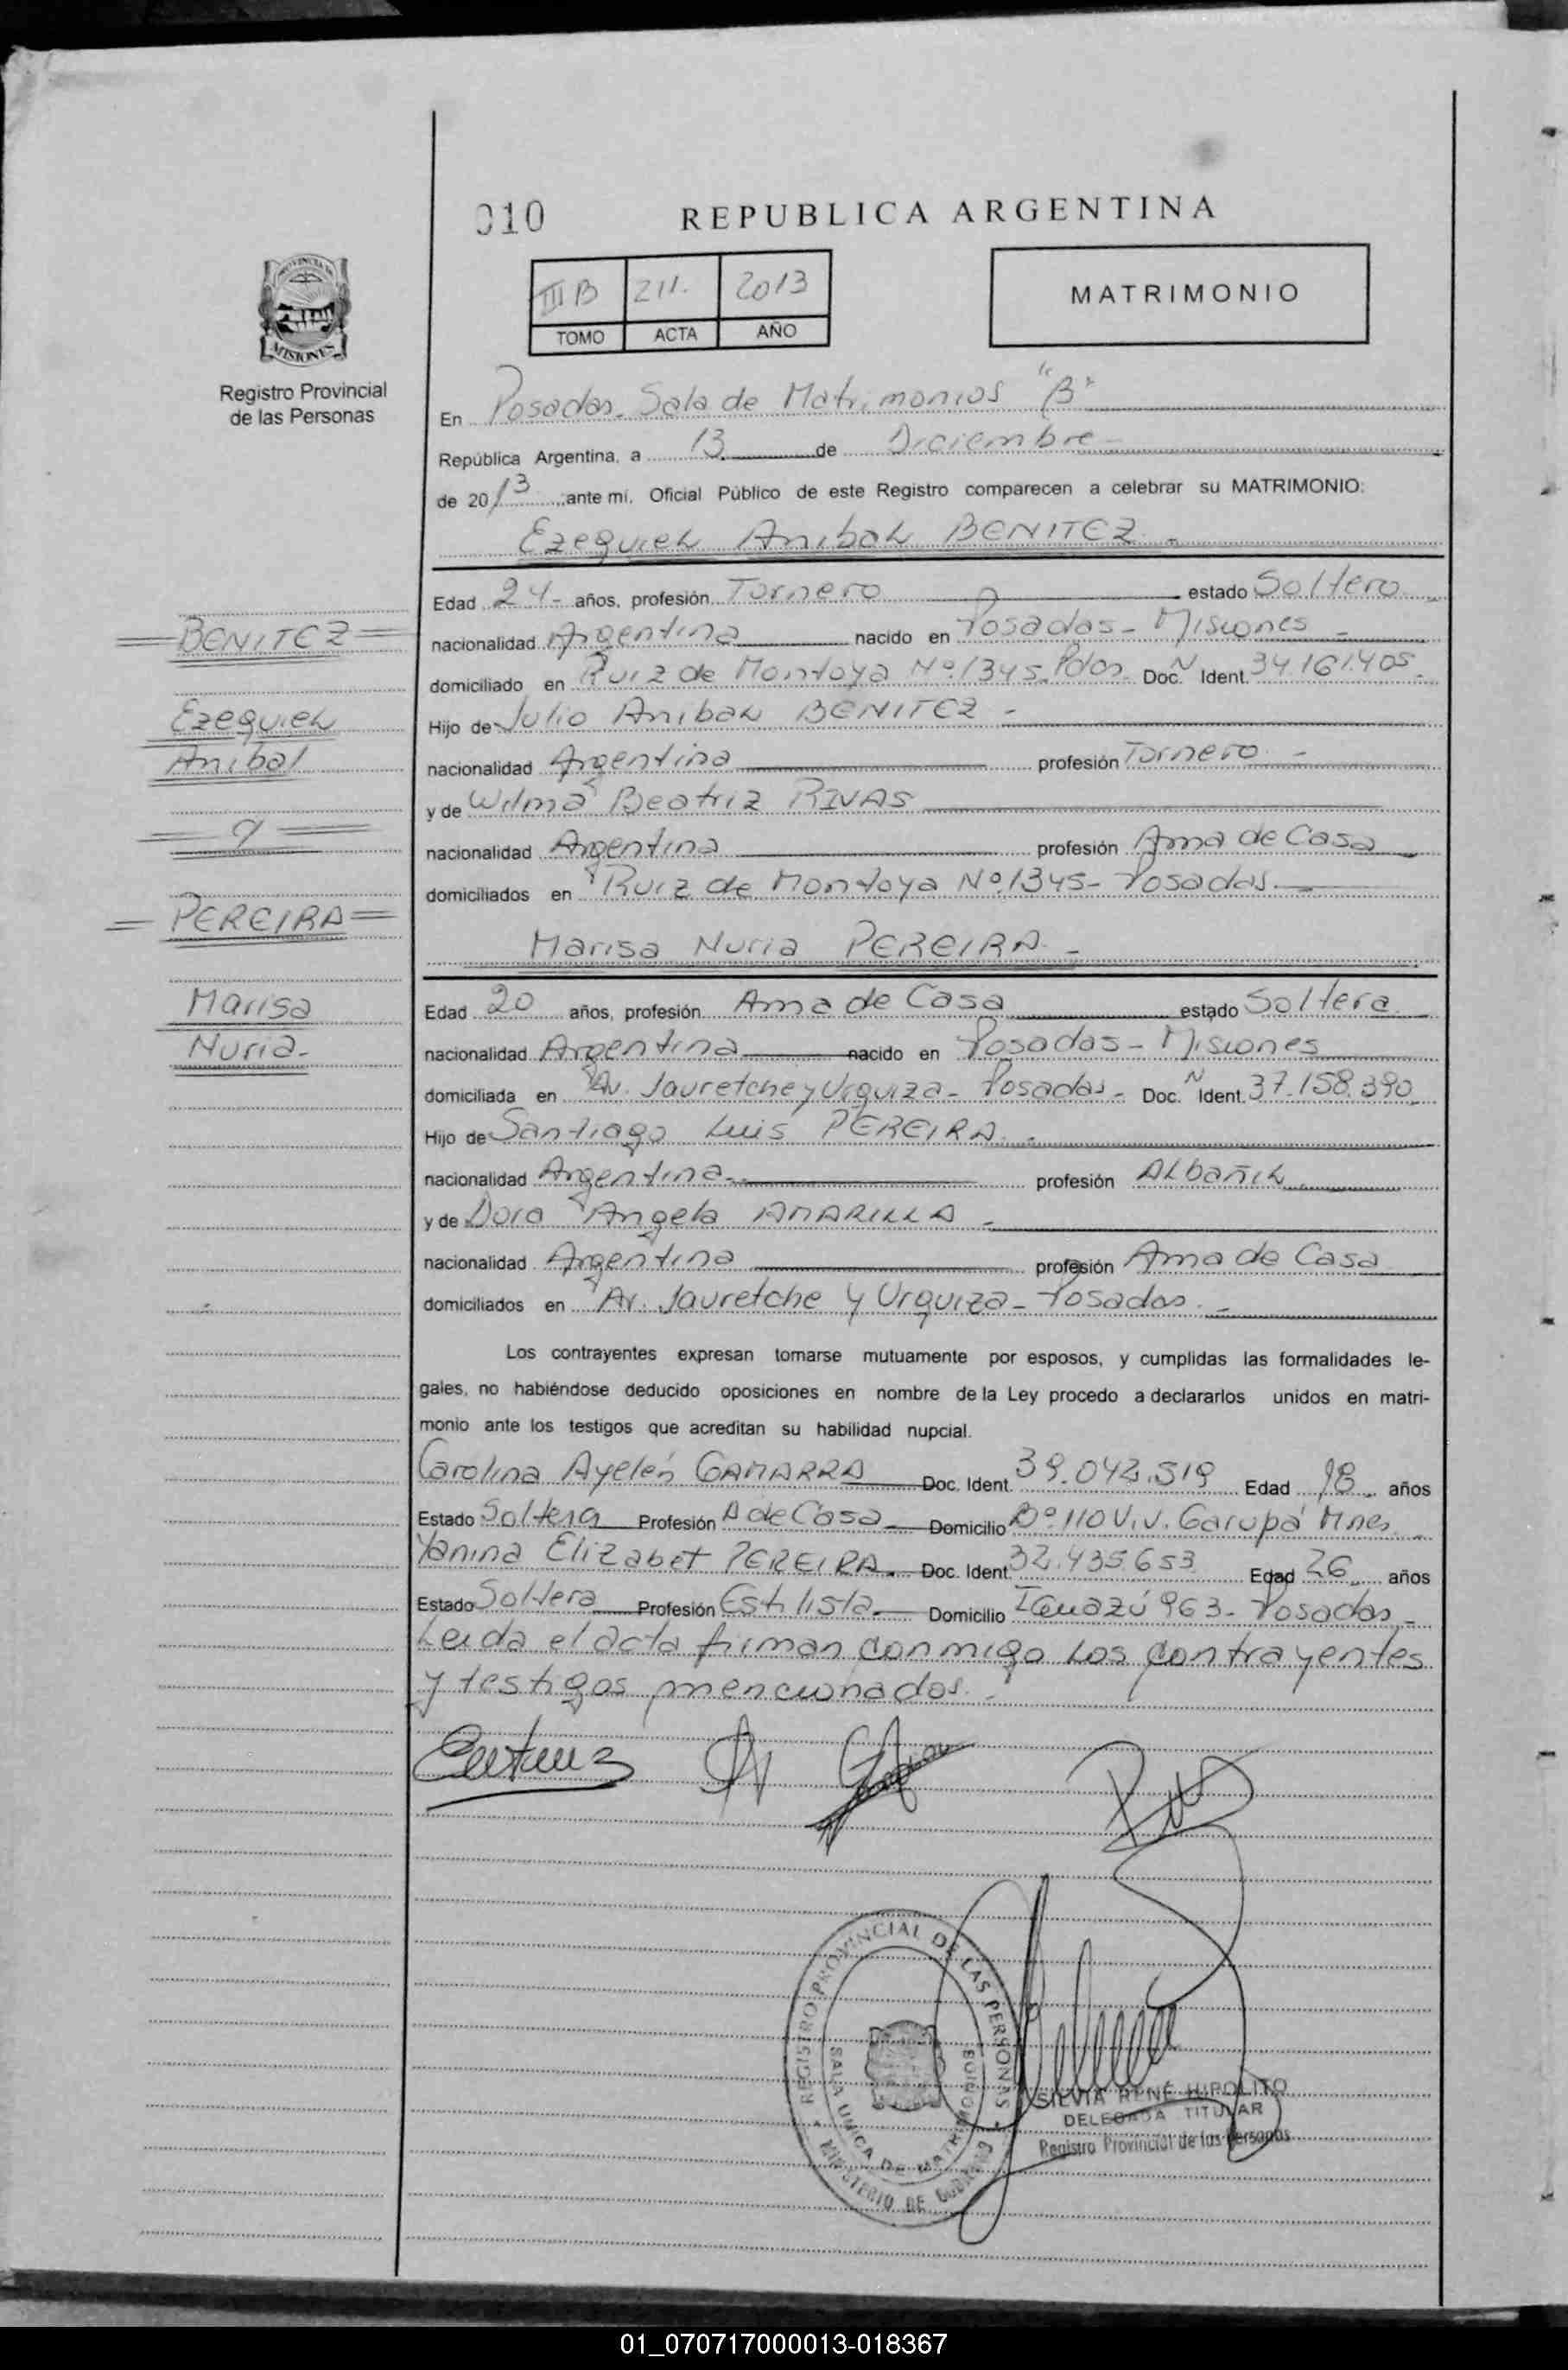 010
REPUBLICA ARGENTINA
PROVINCIA DE
MISIONES
Registro Provincial
de las Personas
III B 211. 2013
TOMO ACTA AÑO
MATRIMONIO
En Posadas. Sala de Matrimonios "B"
República Argentina, a 13 de Diciembre
de 2013 ante mí, Oficial Público de este Registro comparecen a celebrar su MATRIMONIO:
Ezequiel Anibal BENITEZ.
BENITEZ
Ezequiel
Anibal
y
PEREIRA
Marisa
Nuria-
Edad 24- años, profesión Tornero estado Soltero
nacionalidad Argentina nacido en Posadas - Misiones -
domiciliado en Ruiz de Montoya Nº 1345. Pdas. Doc. N Ident. 34.161.405.
Hijo de Julio Anibal BENITEZ -
nacionalidad Argentina profesión Tornero -
y de Wilma Beatriz RIVAS
nacionalidad Argentina profesión Ama de Casa
domiciliados en Ruiz de Montoya Nº 1345- Posadas.
Marisa Nuria PEREIRA -
Edad 20 años, profesión Ama de Casa estado Soltera
nacionalidad Argentina nacido en Posadas - Misiones
domiciliada en Av. Jauretche y Urquiza - Posadas - Doc. N Ident. 37.158.390
Hijo de Santiago Luis PEREIRA.
nacionalidad Argentina profesión Albañil
y de Dora Angela AMARILLA -
nacionalidad Argentina profesión Ama de Casa
domiciliados en Av. Jauretche y Urquiza - Posadas. -
Los contrayentes expresan tomarse mutuamente por esposos, y cumplidas las formalidades le-
gales, no habiéndose deducido oposiciones en nombre de la Ley procedo a declararlos unidos en matri-
monio ante los testigos que acreditan su habilidad nupcial.
Carolina Ayelén GAMARRA Doc. Ident. 39.042.519 Edad 18 años
Estado Soltera Profesión A de Casa Domicilio Bº 110 Viv. Garupá Mnes
Yanina Elizabet PEREIRA. Doc. Ident. 32.435.653 Edad 26 años
Estado Soltera Profesión Estilista Domicilio Iguazú 963 - Posadas -
Leida el acta firman conmigo los contrayentes
y testigos mencionados. -
REGISTRO PROVINCIAL DE LAS PERSONAS
SALA UNICA DE MATRIMONIOS
MINISTERIO DE GOBIERNO
SILVIA RENÉ HIPOLITO
DELEGADA TITULAR
Registro Provincial de las Personas
01_070717000013-018367